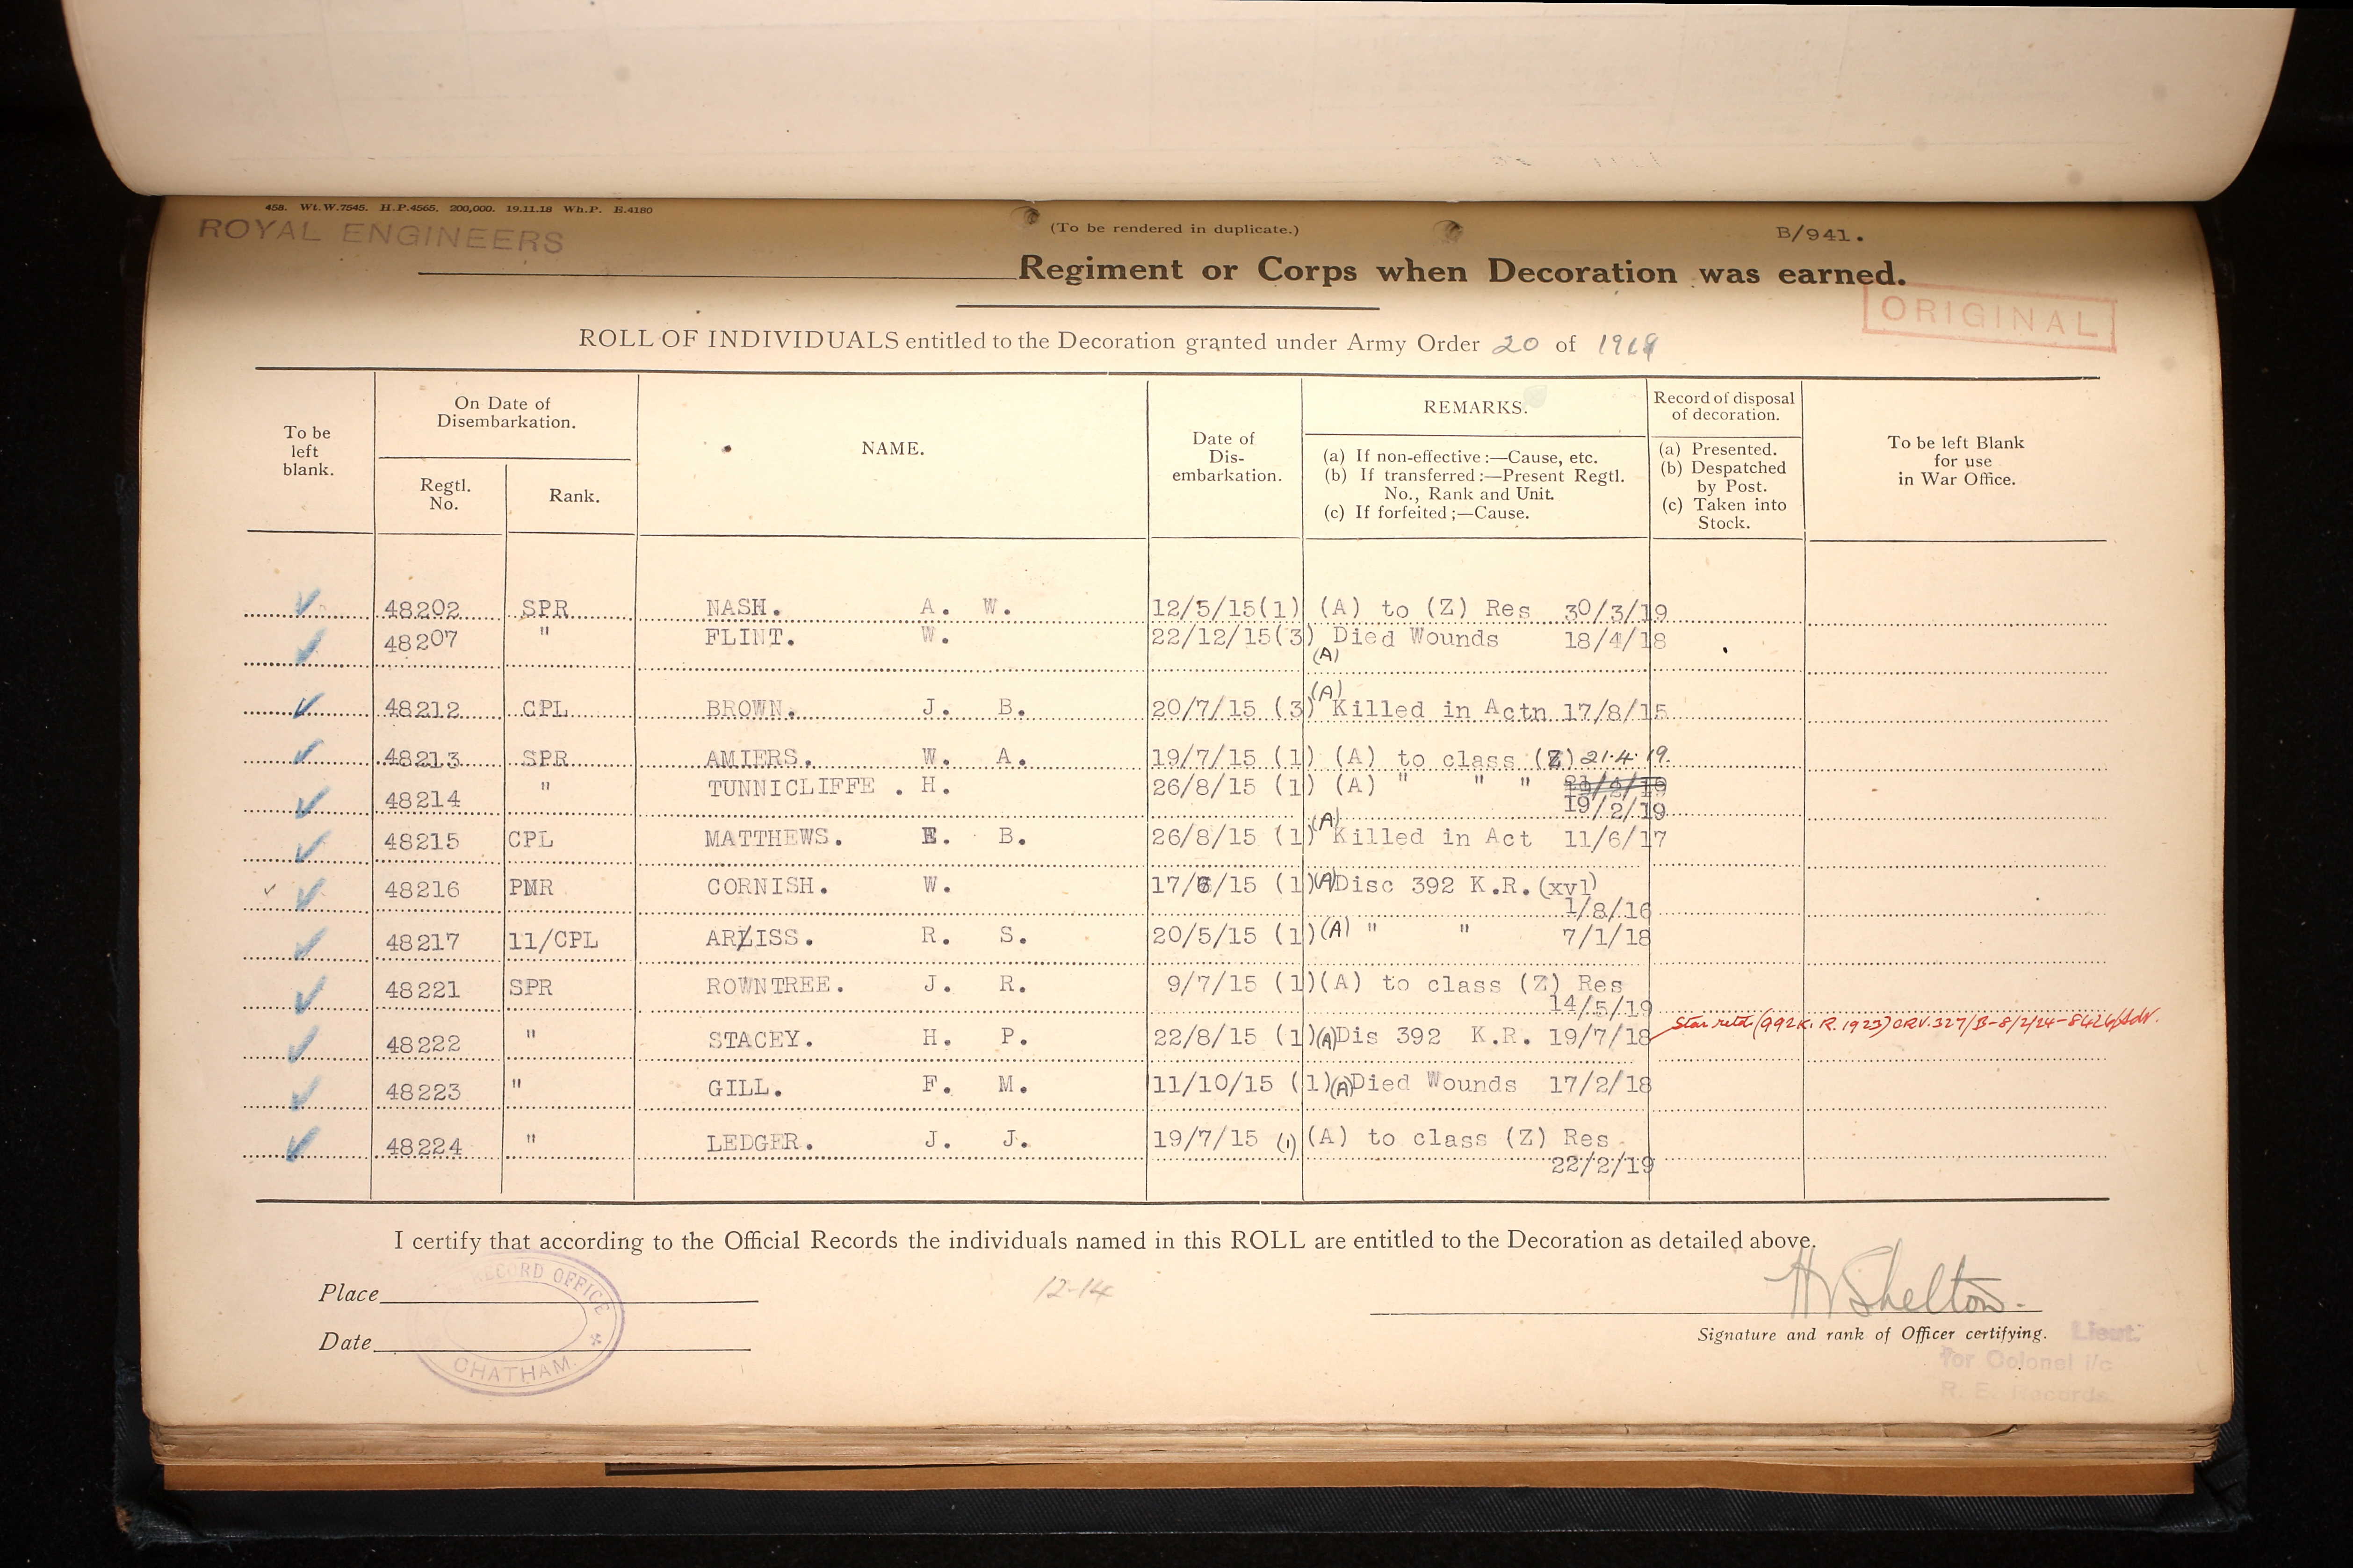 458. Wt.W.7545. H.P.4565. 200,000. 19.11.18 Wh.P. E.4180
ROYAL ENGINEERS
(To be rendered in duplicate.)
B/941.
Regiment or Corps when Decoration was earned.
ORIGINAL
ROLL OF INDIVIDUALS entitled to the Decoration granted under Army Order 20 of 1919
To be left blank.
On Date of Disembarkation.
Regtl. No.
Rank.
NAME.
Date of Dis-embarkation.
REMARKS.
(a) If non-effective :—Cause, etc.
(b) If transferred :—Present Regtl. No., Rank and Unit.
(c) If forfeited ;—Cause.
Record of disposal of decoration.
(a) Presented.
(b) Despatched by Post.
(c) Taken into Stock.
To be left Blank for use in War Office.
48202 SPR NASH. A. W. 12/5/15(1) (A) to (Z) Res 30/3/19
48207 " FLINT. W. 22/12/15(3) Died Wounds 18/4/18
(A)
48212 CPL BROWN. J. B. 20/7/15 (3) (A) Killed in Actn 17/8/15
48213 SPR AMIERS. W. A. 19/7/15 (1) (A) to class (Z) 21.4.19.
48214 " TUNNICLIFFE . H. 26/8/15 (1) (A) " " "
19/2/19
48215 CPL MATTHEWS. E. B. 26/8/15 (1) (A) Killed in Act 11/6/17
48216 PNR CORNISH. W. 17/6/15 (1) (A) Disc 392 K.R.(xvl)
1/8/16
48217 11/CPL ARLISS. R. S. 20/5/15 (1) (A) " " 7/1/18
48221 SPR ROWNTREE. J. R. 9/7/15 (1) (A) to class (Z) Res
14/5/19
48222 " STACEY. H. P. 22/8/15 (1) (A) Dis 392 K.R. 19/7/18 Star retd (992 K.R. 1923) CRV. 327/B-8/2/24-8426/Adv.
48223 " GILL. F. M. 11/10/15 (1) (A) Died Wounds 17/2/18
48224 " LEDGER. J. J. 19/7/15 (1) (A) to class (Z) Res
22/2/19
I certify that according to the Official Records the individuals named in this ROLL are entitled to the Decoration as detailed above.
Place
RECORD OFFICE
CHATHAM.
12-14
H Shelton.
Date
Signature and rank of Officer certifying.
Lieut.
for Colonel i/c
R. E. Records